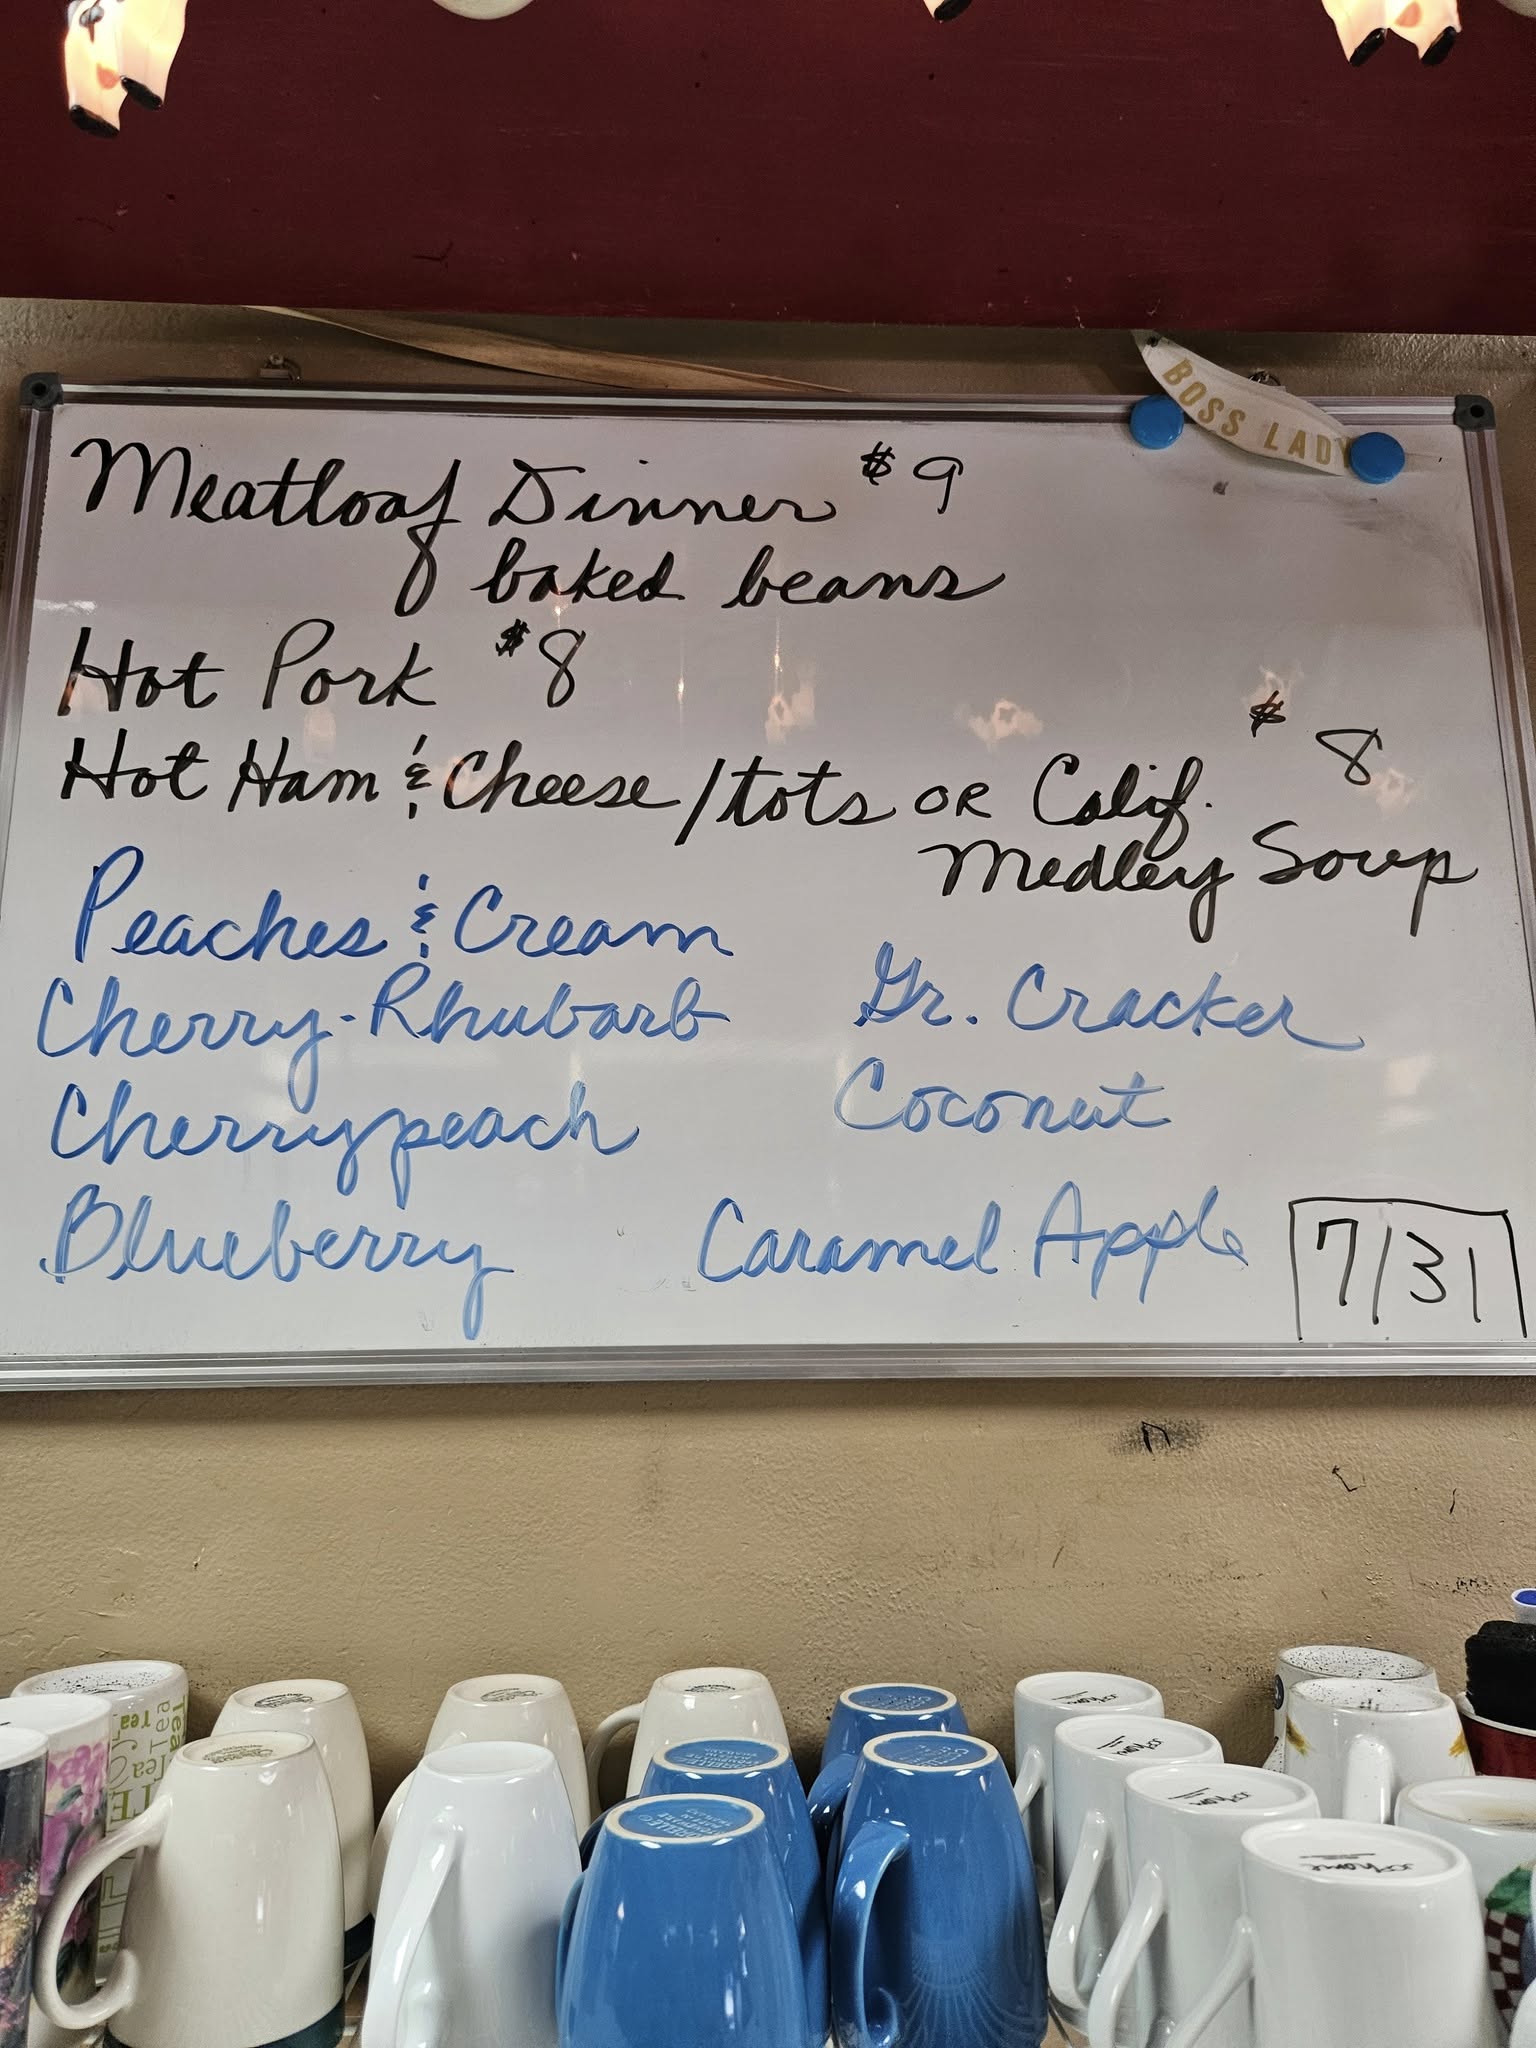 BOSS LADY
Meatloaf Dinner $9
baked beans
Hot Pork $8
Hot Ham & Cheese/tots OR Calif. $8
Medley Soup
Peaches & Cream
Cherry-Rhubarb
Gr. Cracker
Cherrypeach
Coconut
Blueberry
Caramel Apple
7/31
Tea
Tea
Tea
JCPhome
JCPhome
JCPhome
JCPhome
CORELLE